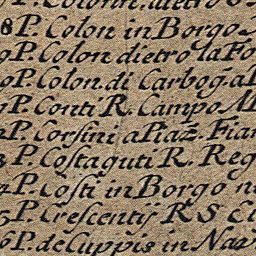 P. Colonn. dietro
8 P. Colon in Borgo
9 P. Colon dietro la Fo
0 P. Colon. di Carbog. a
1 P. Conti R. Campo M
2 P. Corsini a Piaz. Fian
3 P. Costaguti R. Reg
4 P. Costi in Borgo n
5 P. Crescentij R S E
6 P. de Cuppis in Naa